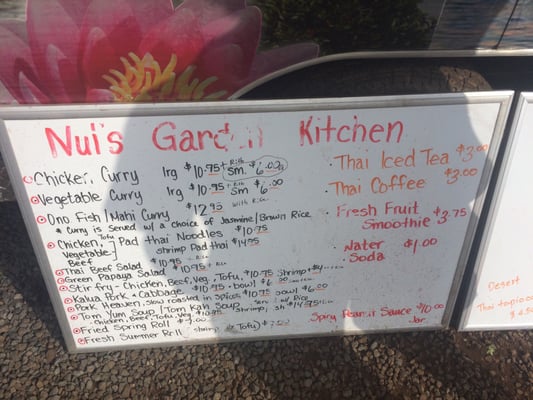 Nui's Garden Kitchen
Chicken Curry lrg $10.95 + Rice sm. $6.00
Vegetable Curry lrg $10.95 + Rice sm $6.00
Ono Fish/Mahi Curry $12.95 with Rice
* Curry is served w/ a choice of Jasmine/Brown Rice
Chicken, Tofu
Vegetable, Pad thai Noodles $10.95
Beef shrimp Pad thai $14.95
Thai Beef Salad $10.95 + Rice
Green Papaya Salad $10.95 + Rice
Stir fry - Chicken, Beef, Veg, Tofu, $10.95 Shrimp
Kalua Pork + Cabbage $10.95, bowl $6.00
Pork Heaven, slow roasted in spices $10.95 bowl $6.00
Tom Yum Soup/Tom Kah Soup w/ Rice
chicken, Beef, Tofu, Veg. $10.95 Shrimp,
Fried Spring Roll $7.00
Fresh Summer Roll shrimp or Tofu $7.00
Thai Iced Tea $3.00
Thai Coffee $3.00
Fresh Fruit
Smoothie $3.75
Water $1.00
Soda
Spicy Peanut Sauce $10.00
Jar
Desert
Thai tapioca